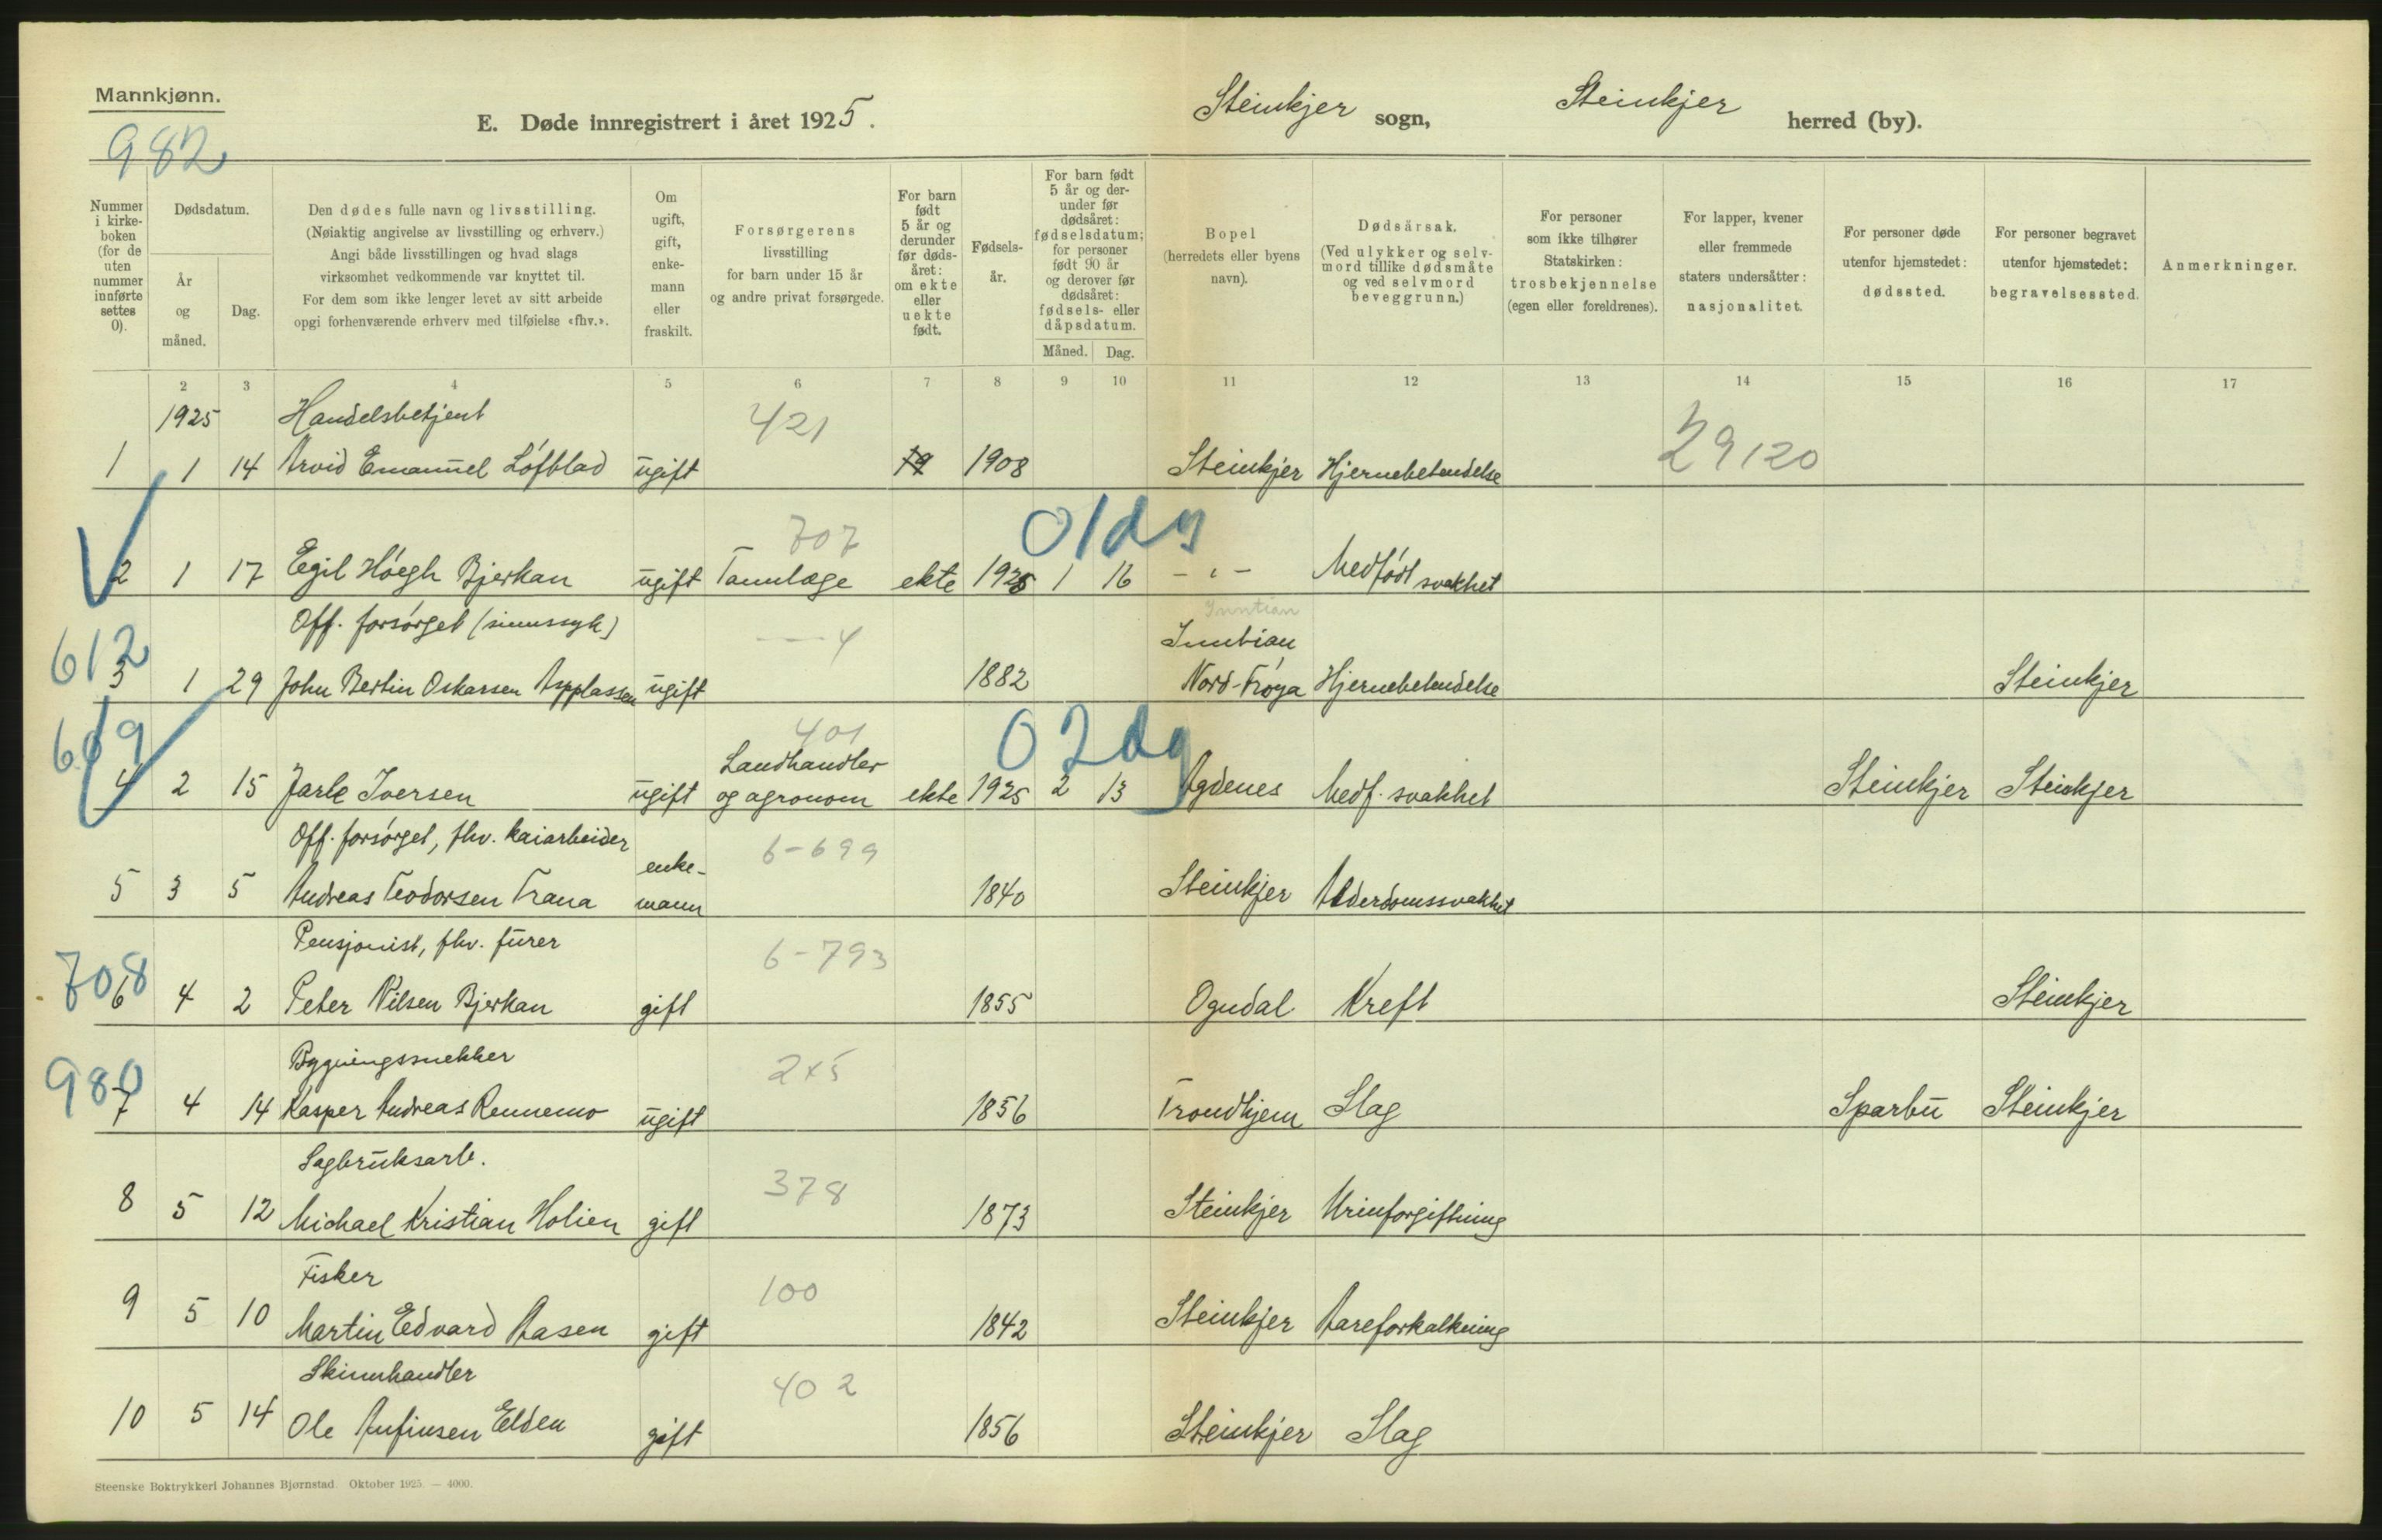 Mannkjønn.
982
E. Døde innregistrert i året 1925.
Steinkjer sogn, Steinkjer herred (by).
Nummer i kirke- boken (for de uten nummer innførte settes 0).
Dødsdatum.
År og måned.
Dag.
Den dødes fulle navn og livsstilling.
(Nøiaktig angivelse av livsstilling og erhverv.)
Angi både livsstillingen og hvad slags
virksomhet vedkommende var knyttet til.
For dem som ikke lenger levet av sitt arbeide
opgi forhenværende erhverv med tilføielse «fhv.».
Om ugift, gift, enke- mann eller fraskilt.
Forsørgerens
livsstilling
for barn under 15 år
og andre privat forsørgede.
For barn født 5 år og derunder før døds- året: om ekte eller uekte født.
Fødsels- år.
For barn født 5 år og der- under før dødsåret: fødselsdatum; for personer født 90 år og derover før dødsåret: fødsels- eller dåpsdatum.
Måned. Dag.
Bopel
(herredets eller byens
navn).
Dødsårsak.
(Ved ulykker og selv-
mord tillike dødsmåte
og ved selvmord
beveggrunn.)
For personer
som ikke tilhører
Statskirken:
trosbekjennelse
(egen eller foreldrenes).
For lapper, kvener
eller fremmede
staters undersåtter:
nasjonalitet.
For personer døde
utenfor hjemstedet:
dødssted.
For personer begravet
utenfor hjemstedet:
begravelsessted.
Anmerkninger.
2 3 4 5 6 7 8 9 10 11 12 13 14 15 16 17
1925 Handelsbetjent 421
1 1 14 Arvid Emanuel Löfblad ugift 19 1908 Steinkjer Hjernebetendelse 29120
707 01dg
2 1 17 Egil Höegh Bjerkan ugift Tannlæge ekte 1925 1 16 - " - Medfödt svakhet
Inntian
612 Off. forsørget (sinnssyk) 4 Inntian
3 1 29 John Bertin Oskarsen Aspplassen ugift 1882 Nord-Fröya Hjernebetendelse Steinkjer
619 401 02dg
Landhandler
4 2 15 Jarle Iversen ugift og agronom ekte 1925 2 13 Agdenes Medf. svakhet Steinkjer Steinkjer
Off. forsørget, fhv. kaiarbeider enke- 6-699
5 3 5 Andreas Teodorsen Trana mann 1840 Steinkjer Alderdomssvakhet
Pensjonist, fhv. furer 6-793
708
6 4 2 Peter Nilsen Bjerkan gift 1855 Ogndal Kreft Steinkjer
Bygningssnekker 2x5
980
7 4 14 Kasper Andreas Rennemo ugift 1856 Trondhjem Slag Sparbu Steinkjer
Sagbruksarb. 378
8 5 12 Michael Kristian Holien gift 1873 Steinkjer Urinforgiftning
Fisker 100
9 5 10 Martin Edvard Aasen gift 1842 Steinkjer Aareforkalkning
Skinnhandler 402
10 5 14 Ole Anfinsen Elden gift 1856 Steinkjer Slag
Steenske Boktrykkeri Johannes Bjørnstad. Oktober 1925. — 4000.